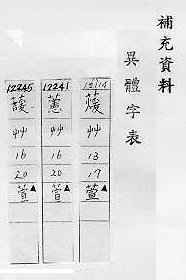 補充資料
異體字表
12114
蕿
艸
13
17
萱▲
12241
藼
艸
16
20
萱▲
12245
蘐
艸
16
20
萱▲